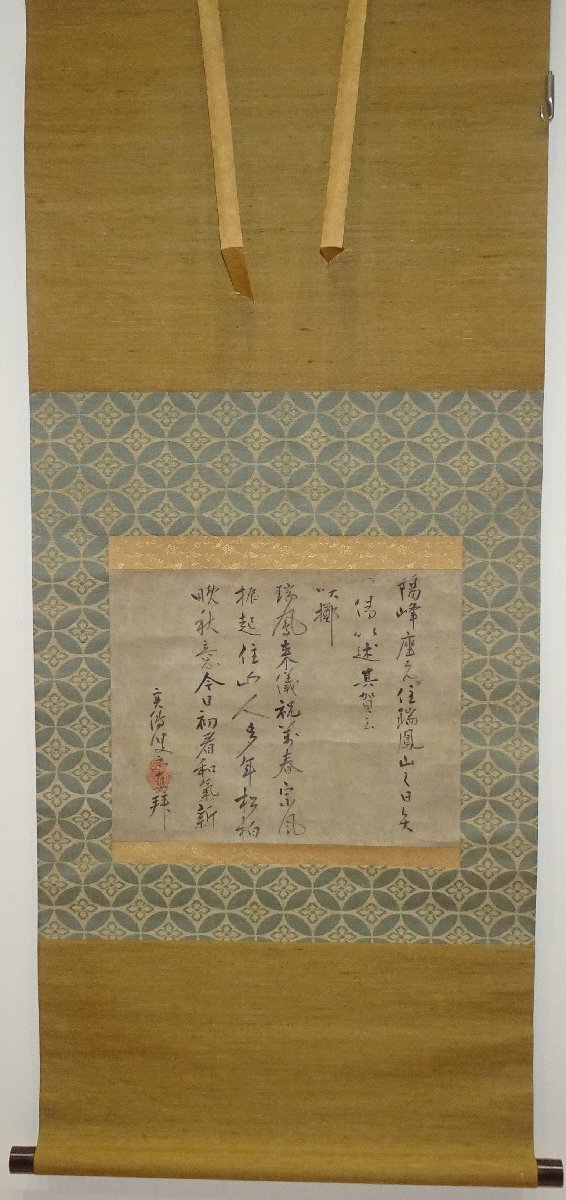 陽峰座元住瑞鳳山之日矣
一偈以述其賀云
咲擲
瑞鳳来儀祝萬春宗風
振起住山人多年松栢
晩秋意今日初看和氣新
実傳叟宗真拜